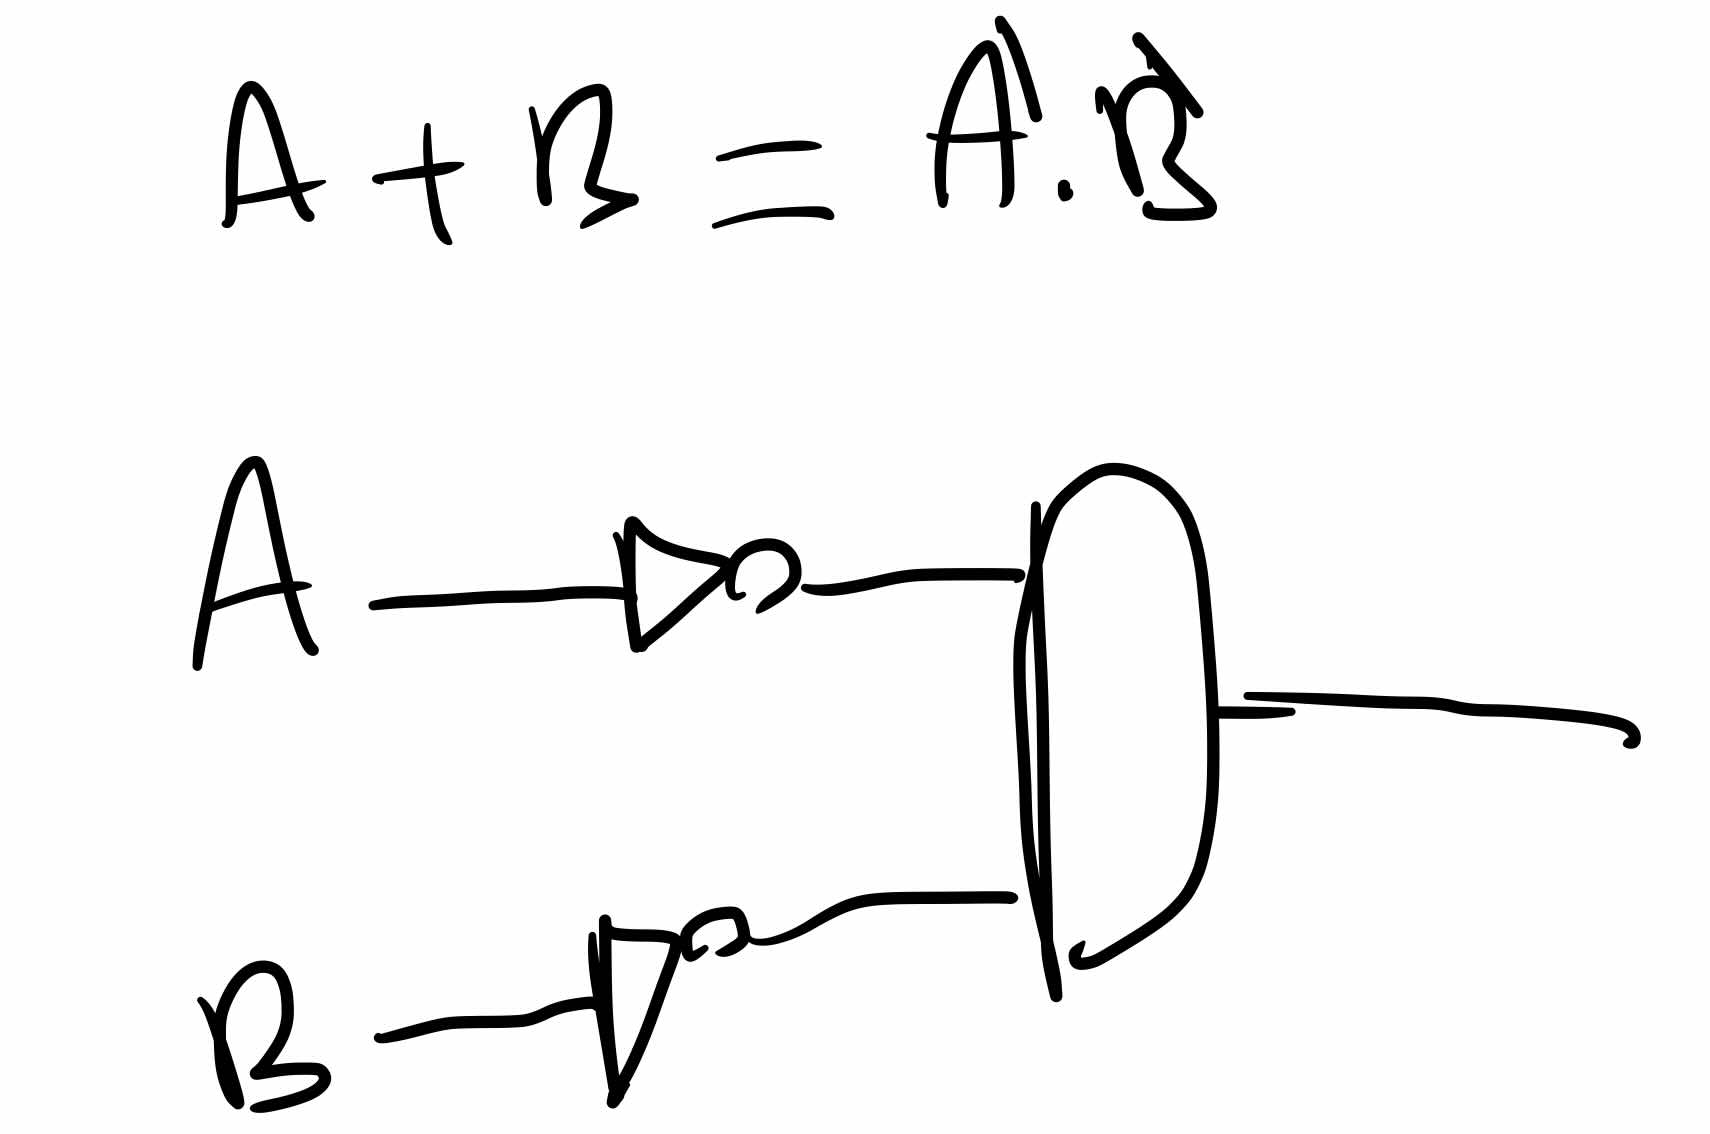 A + B = A'. B'
A
B